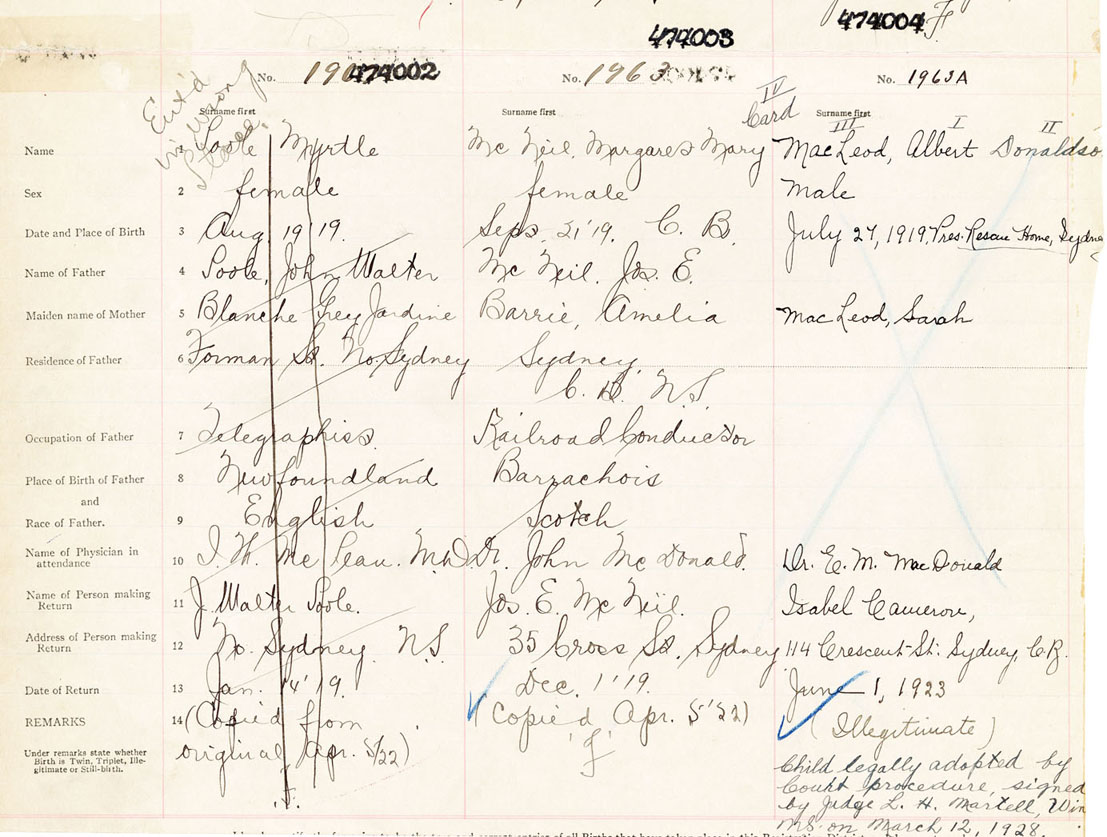 474004
474003
474002
No. 190
No. 1963
No. 1963A
Ent'd in wrong place
IV
Card
Surname first
Surname first
III I II
Name 1 Poole Myrtle Mc Neil Margaret Mary MacLeod, Albert Donaldso
Sex 2 female female Male
Date and Place of Birth 3 Aug 19 '19. Sept. 21 '19. C. B. July 27, 1919, Pres. Rescue Home, Sydne
Name of Father 4 Poole, John Walter Mc Neil. Jos. E.
Maiden name of Mother 5 Blanche Grey Jardine Barrie, Amelia MacLeod, Sarah
Residence of Father 6 Forman St. No. Sydney Sydney
C. B. N.S.
Occupation of Father 7 Telegraphist Railroad Conductor
Place of Birth of Father 8 Newfoundland Barrachois
and
Race of Father. 9 English Scotch
Name of Physician in
attendance 10 Mc Lean. M.D. Dr. John Mc Donald. Dr. E. M. MacDonald
Name of Person making
Return 11 J. Walter Poole. Jos. E. Mc Neil. Isabel Cameron,
Address of Person making
Return 12 No. Sydney. N.S. 35 Cross St. Sydney 114 Crescent St. Sydney, C.B.
Date of Return 13 Jan. 14 '19. Dec. 1 '19. June 1, 1923
REMARKS 14 (Copied from (Copied Apr. 5 '22) (Illegitimate)
Under remarks state whether
Birth is Twin, Triplet, Ille-
gitimate or Still-birth.
original Apr. 5/22)
Child legally adopted by
Court procedure, signed
by Judge L. H. Martell, Win
N.S. on March 12, 1928.